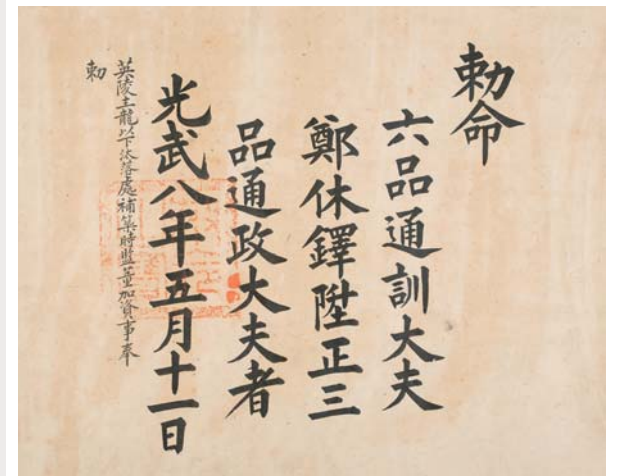 勅命
六品通訓大夫
鄭休鐸陞正三
品通政大夫者
光武八年五月十一日
英陵主龍以下汰落處補築時監董加資事奉
勅